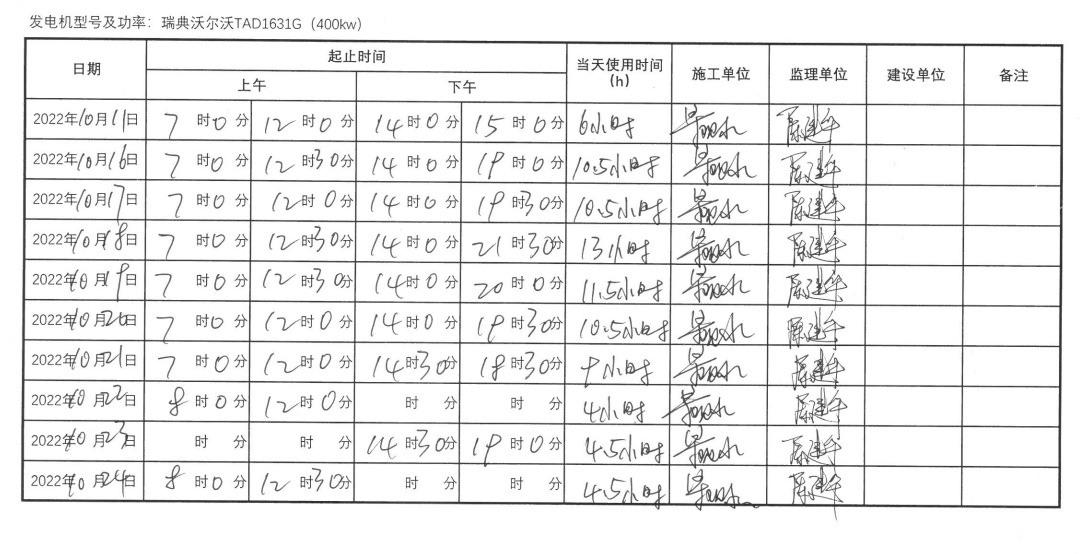 发电机型号及功率：瑞典沃尔沃TAD1631G（400kw）
日期 起止时间 当天使用时间（h） 施工单位 监理单位 建设单位 备注
上午 下午
2022年10月11日 7时0分 12时0分 14时0分 15时0分 6小时
2022年10月16日 7时0分 12时30分 14时0分 19时0分 10.5小时
2022年10月17日 7时0分 12时0分 14时0分 19时30分 10.5小时
2022年10月18日 7时0分 12时30分 14时0分 21时30分 13小时
2022年10月19日 7时0分 12时30分 14时0分 20时0分 11.5小时
2022年10月20日 7时0分 12时0分 14时0分 19时30分 10.5小时
2022年10月21日 7时0分 12时0分 14时30分 18时30分 9小时
2022年10月22日 8时0分 12时0分 时 分 时 分 4小时
2022年10月23日 时 分 时 分 14时30分 19时0分 4.5小时
2022年10月24日 8时0分 12时30分 时 分 时 分 4.5小时